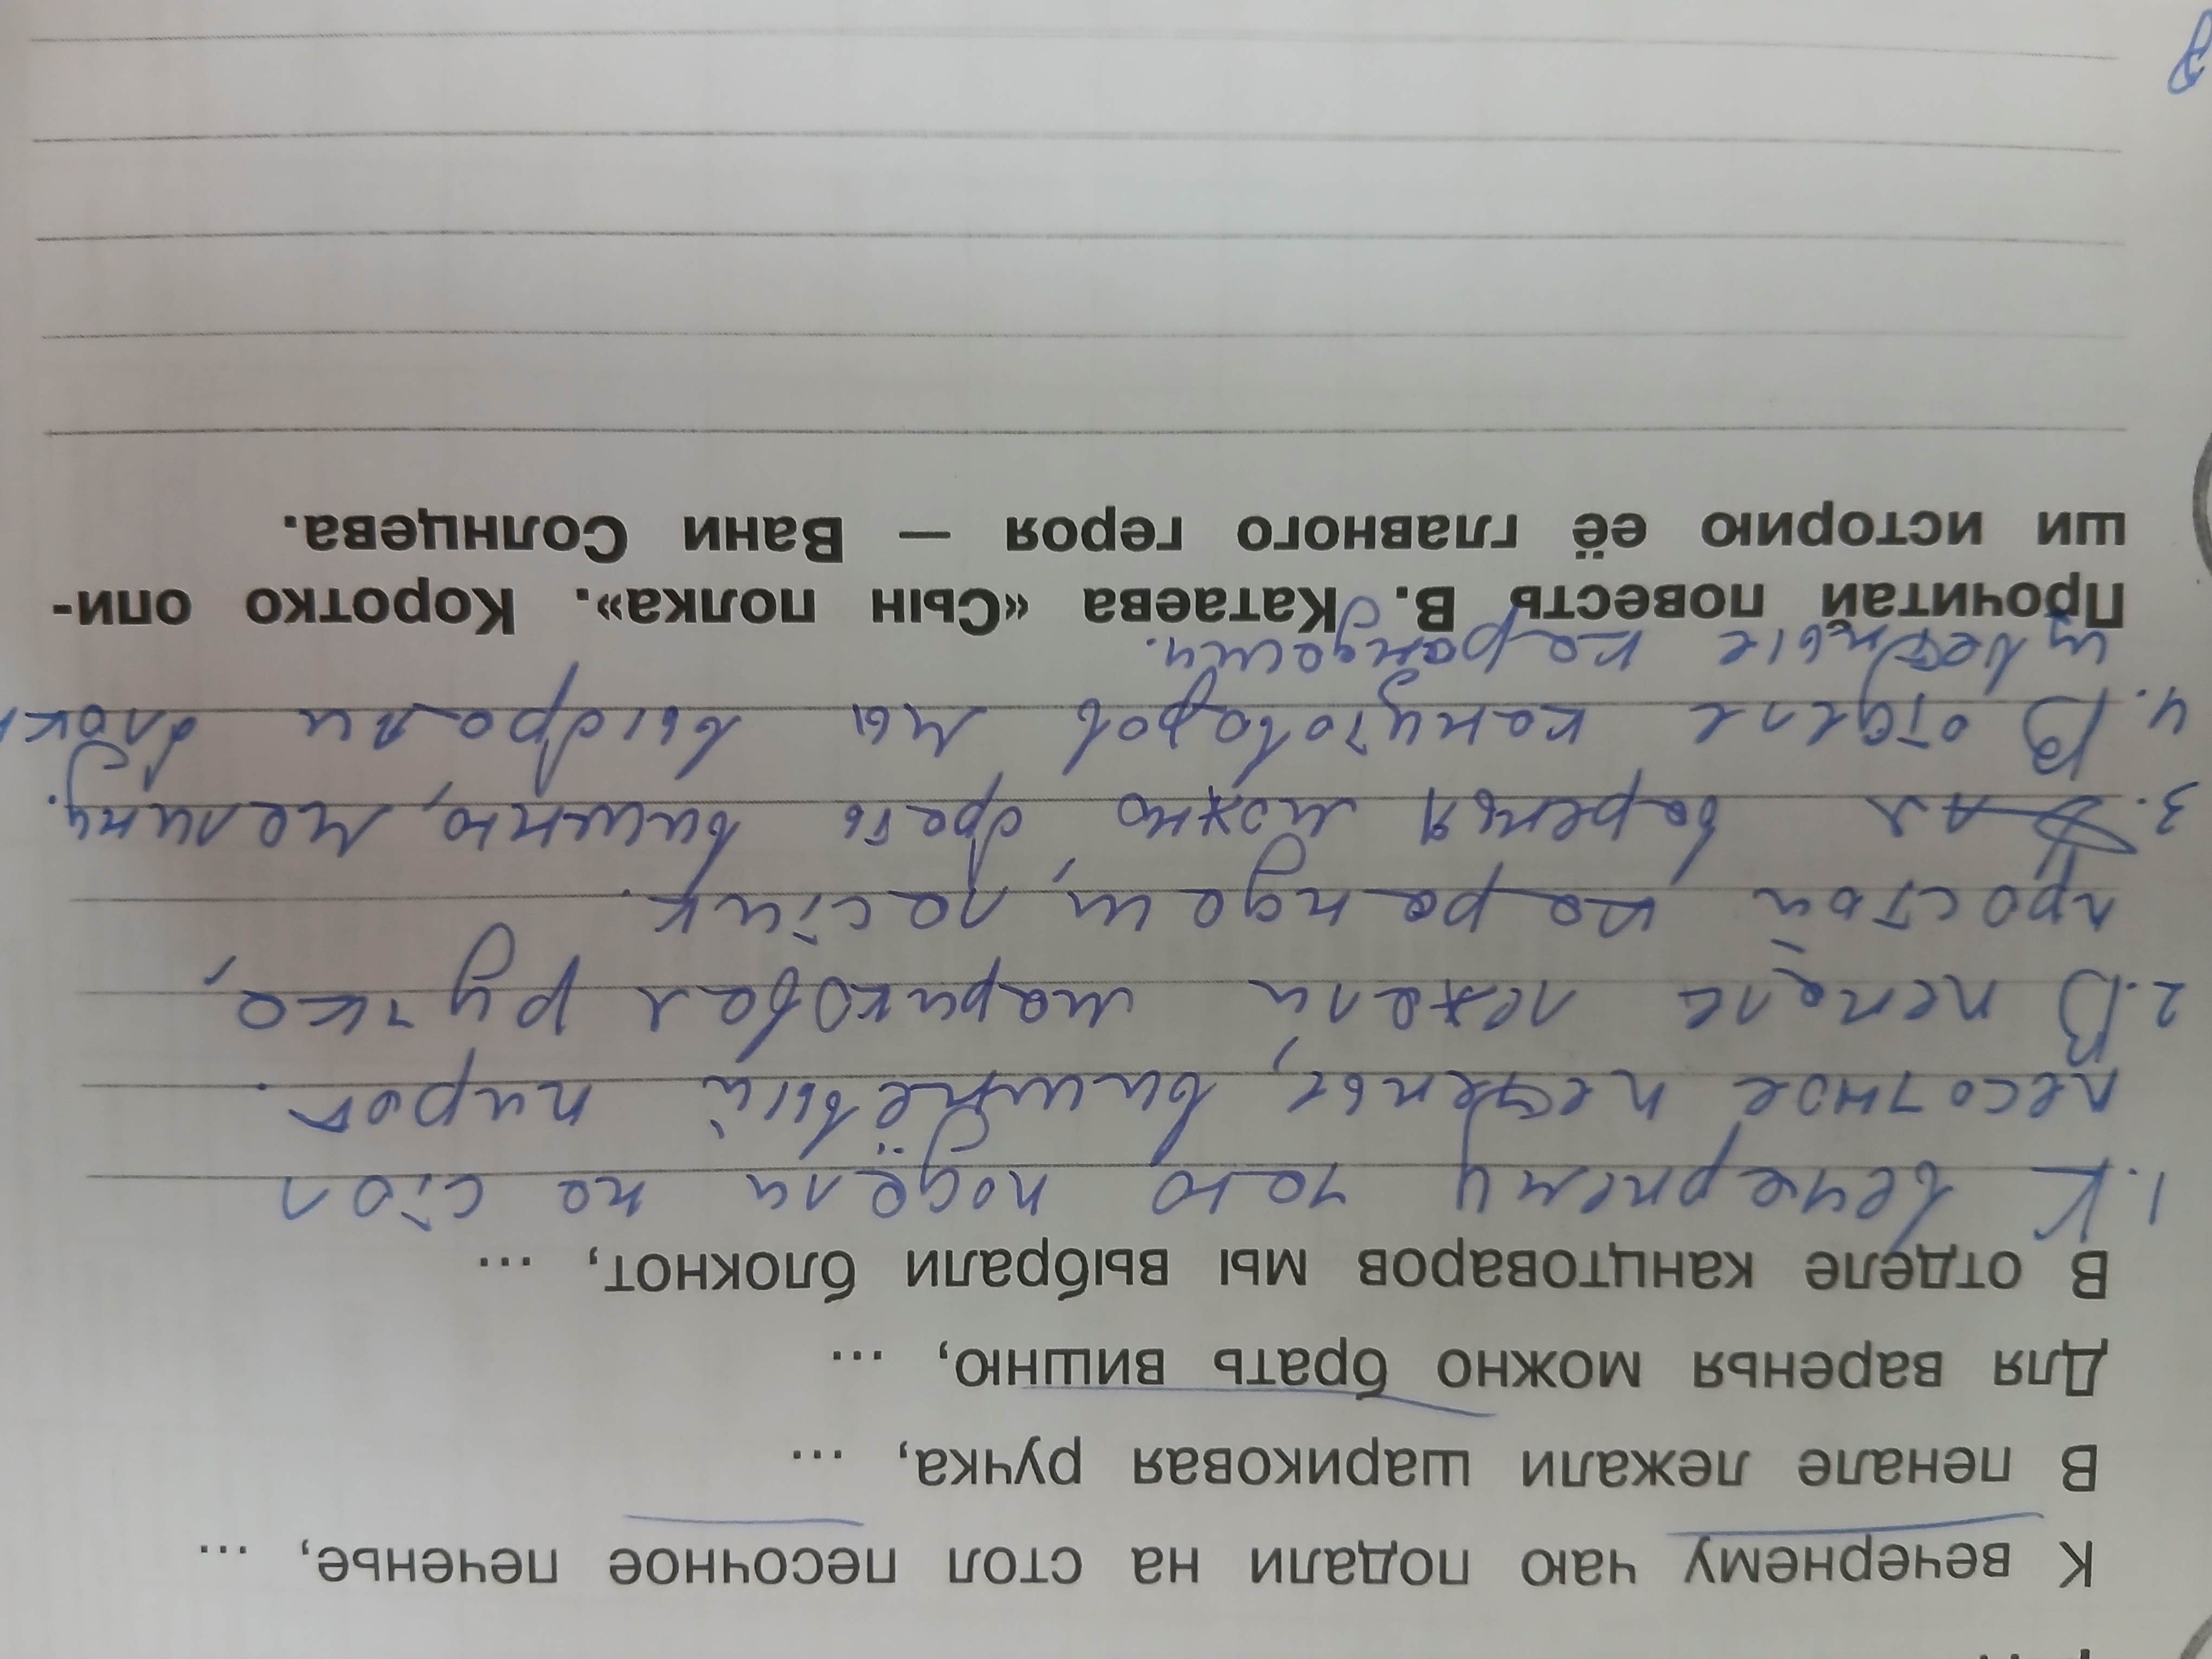 К вечернему чаю подали на стол песочное печенье, ...
В пенале лежали шариковая ручка, ...
Для варенья можно брать вишню, ...
В отделе канцтоваров мы выбрали блокнот, ...
1. К вечернему чаю подали на стол
песочное печенье, вишнёвый пирог.
2. В пенале лежали шариковая ручка,
простой карандаш, ластик.
3. Для варенья можно брать вишню, малину.
4. В отделе канцтоваров мы выбрали блокн
цветные карандаши.
Прочитай повесть В. Катаева «Сын полка». Коротко опи-
ши историю её главного героя — Вани Солнцева.